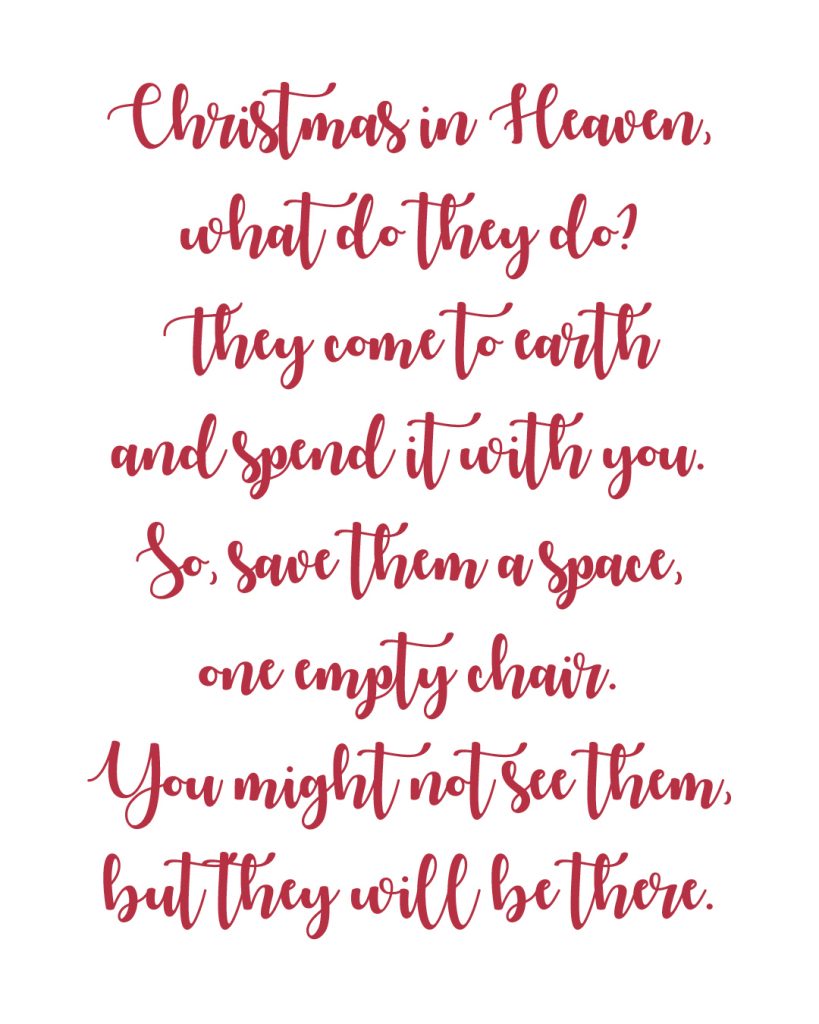 Christmas in Heaven,
what do they do?
they come to earth
and spend it with you.
So, save them a space,
one empty chair.
You might not see them,
but they will be there.